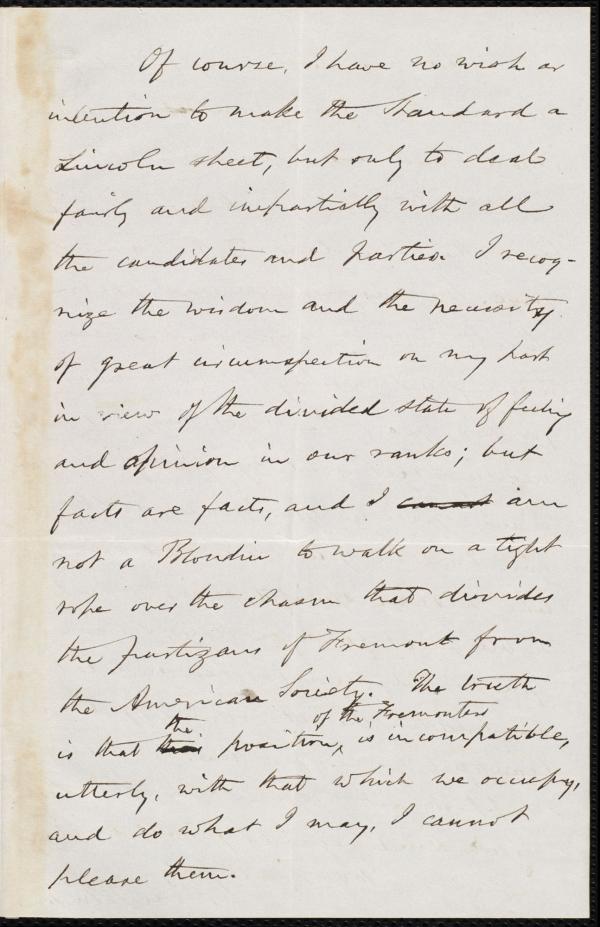 Of course, I have no wish or
intention to make the Standard a
Lincoln sheet, but only to deal
fairly and impartially with all
the candidates and parties. I recog-
nize the wisdom and the necessity
of great circumspection on my part
in view of the divided state of feeling
and opinion in our ranks; but
facts are facts, and I cannot am
not a Blondin to walk on a tight
rope over the chasm that divides
the partizans of Fremont from
the American Society. The truth
is that the position of the Fremonters is incompatible,
utterly, with that which we occupy,
and do what I may, I cannot
please them.